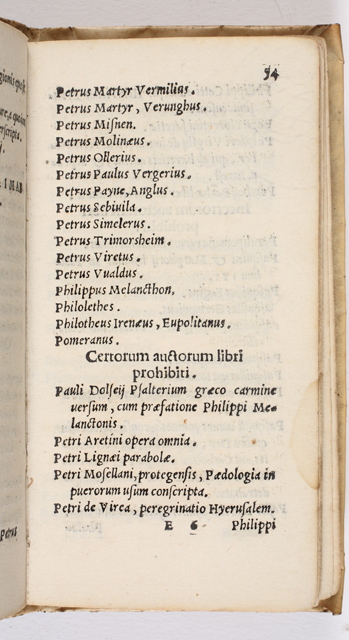 54
Petrus Martyr Vermilius.
Petrus Martyr, Verunghus.
Petrus Misnen.
Petrus Molinæus.
Petrus Ollerius.
Petrus Paulus Vergerius.
Petrus Payne, Anglus.
Petrus Sebiuila.
Petrus Simelerus.
Petrus Trimorsheim.
Petrus Viretus.
Petrus Vualdus.
Philippus Melancthon,
Philolethes.
Philotheus Irenæus, Eupolitanus.
Pomeranus.
Certorum auctorum libri
prohibiti.
Pauli Dolseij Psalterium græco carmine
uersum, cum præfatione Philippi Me-
lanctonis.
Petri Aretini opera omnia.
Petri Lignæi parabolæ.
Petri Mosellani, protegensis, Pædologia in
puerorum usum conscripta.
Petri de Virea, peregrinatio Hyerusalem.
E 6 Philippi
Petrus